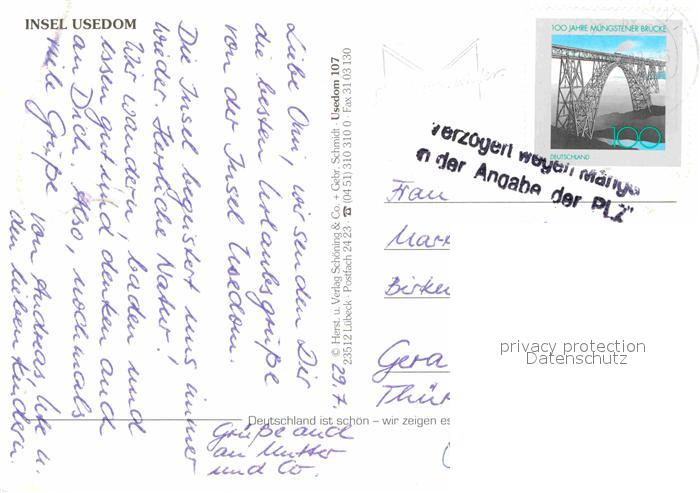 INSEL USEDOM
100 JAHRE MÜNGSTENER BRÜCKE
100
DEUTSCHLAND
verzögert wegen Mängel
in der Angabe der PLZ"
Liebe Omi, wir senden Dir
die besten Urlaubsgrüße
von der Insel Usedom.
Die Insel begeistert uns immer
wieder. Herrliche Natur!
Wir wandern, baden und
essen gut und denken auch
an Dich. Also, nochmals
viele Grüße
von Andreas, Ute u.
den lieben Kindern.
29.7.
Grüße auch
an Mutter
und Co.
© Herst. u. Verlag Schöning & Co. + Gebr. Schmidt · Usedom 107
23512 Lübeck · Postfach 24 23 · ☎ (04 51) 310 310 0 · Fax 31 03 130
Frau
Mar
Birke
Gera
Thür
privacy protection
Datenschutz
Deutschland ist schön – wir zeigen es